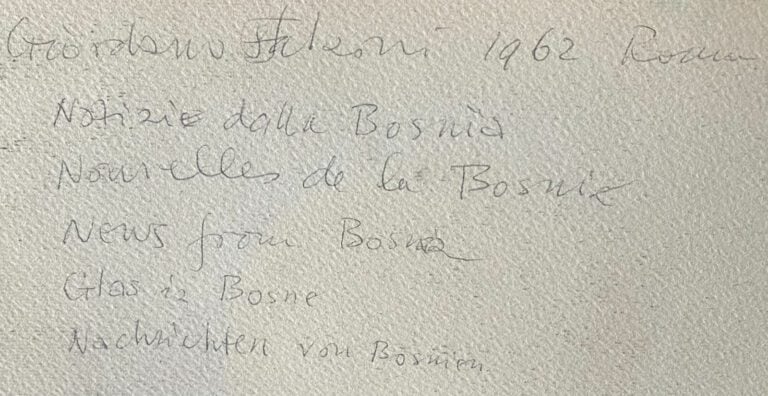 Giordano Falzoni 1962 Roma
Notizie dalla Bosnia
Nouvelles de la Bosnie
News from Bosna
Glas iz Bosne
Nachrichten von Bosnien